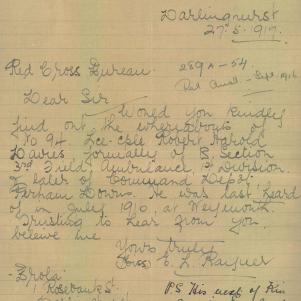 Darlinghurst
27.5.1917.
Red Cross Bureau.
289A-54.
Dear Sir
Would you kindly
find out the whereabouts of
Lce-Cple Robert Harold
Davies formally of B. Section
3rd Field Ambulance 1st Division
& later of Command Depot,
Perham Downs. He was last heard
of in July 1916, at Weymouth.
Trusting to hear from you
believe me
Yours truly
(Miss) E. L.
PS His next of Kin
"Erola"
1 Rosebank St.